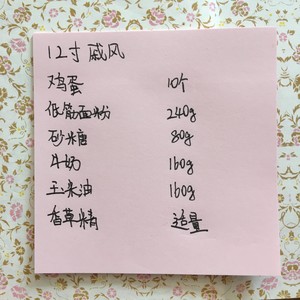 12寸 戚风
鸡蛋 10个
低筋面粉 240g
砂糖 80g
牛奶 160g
玉米油 160g
香草精 适量